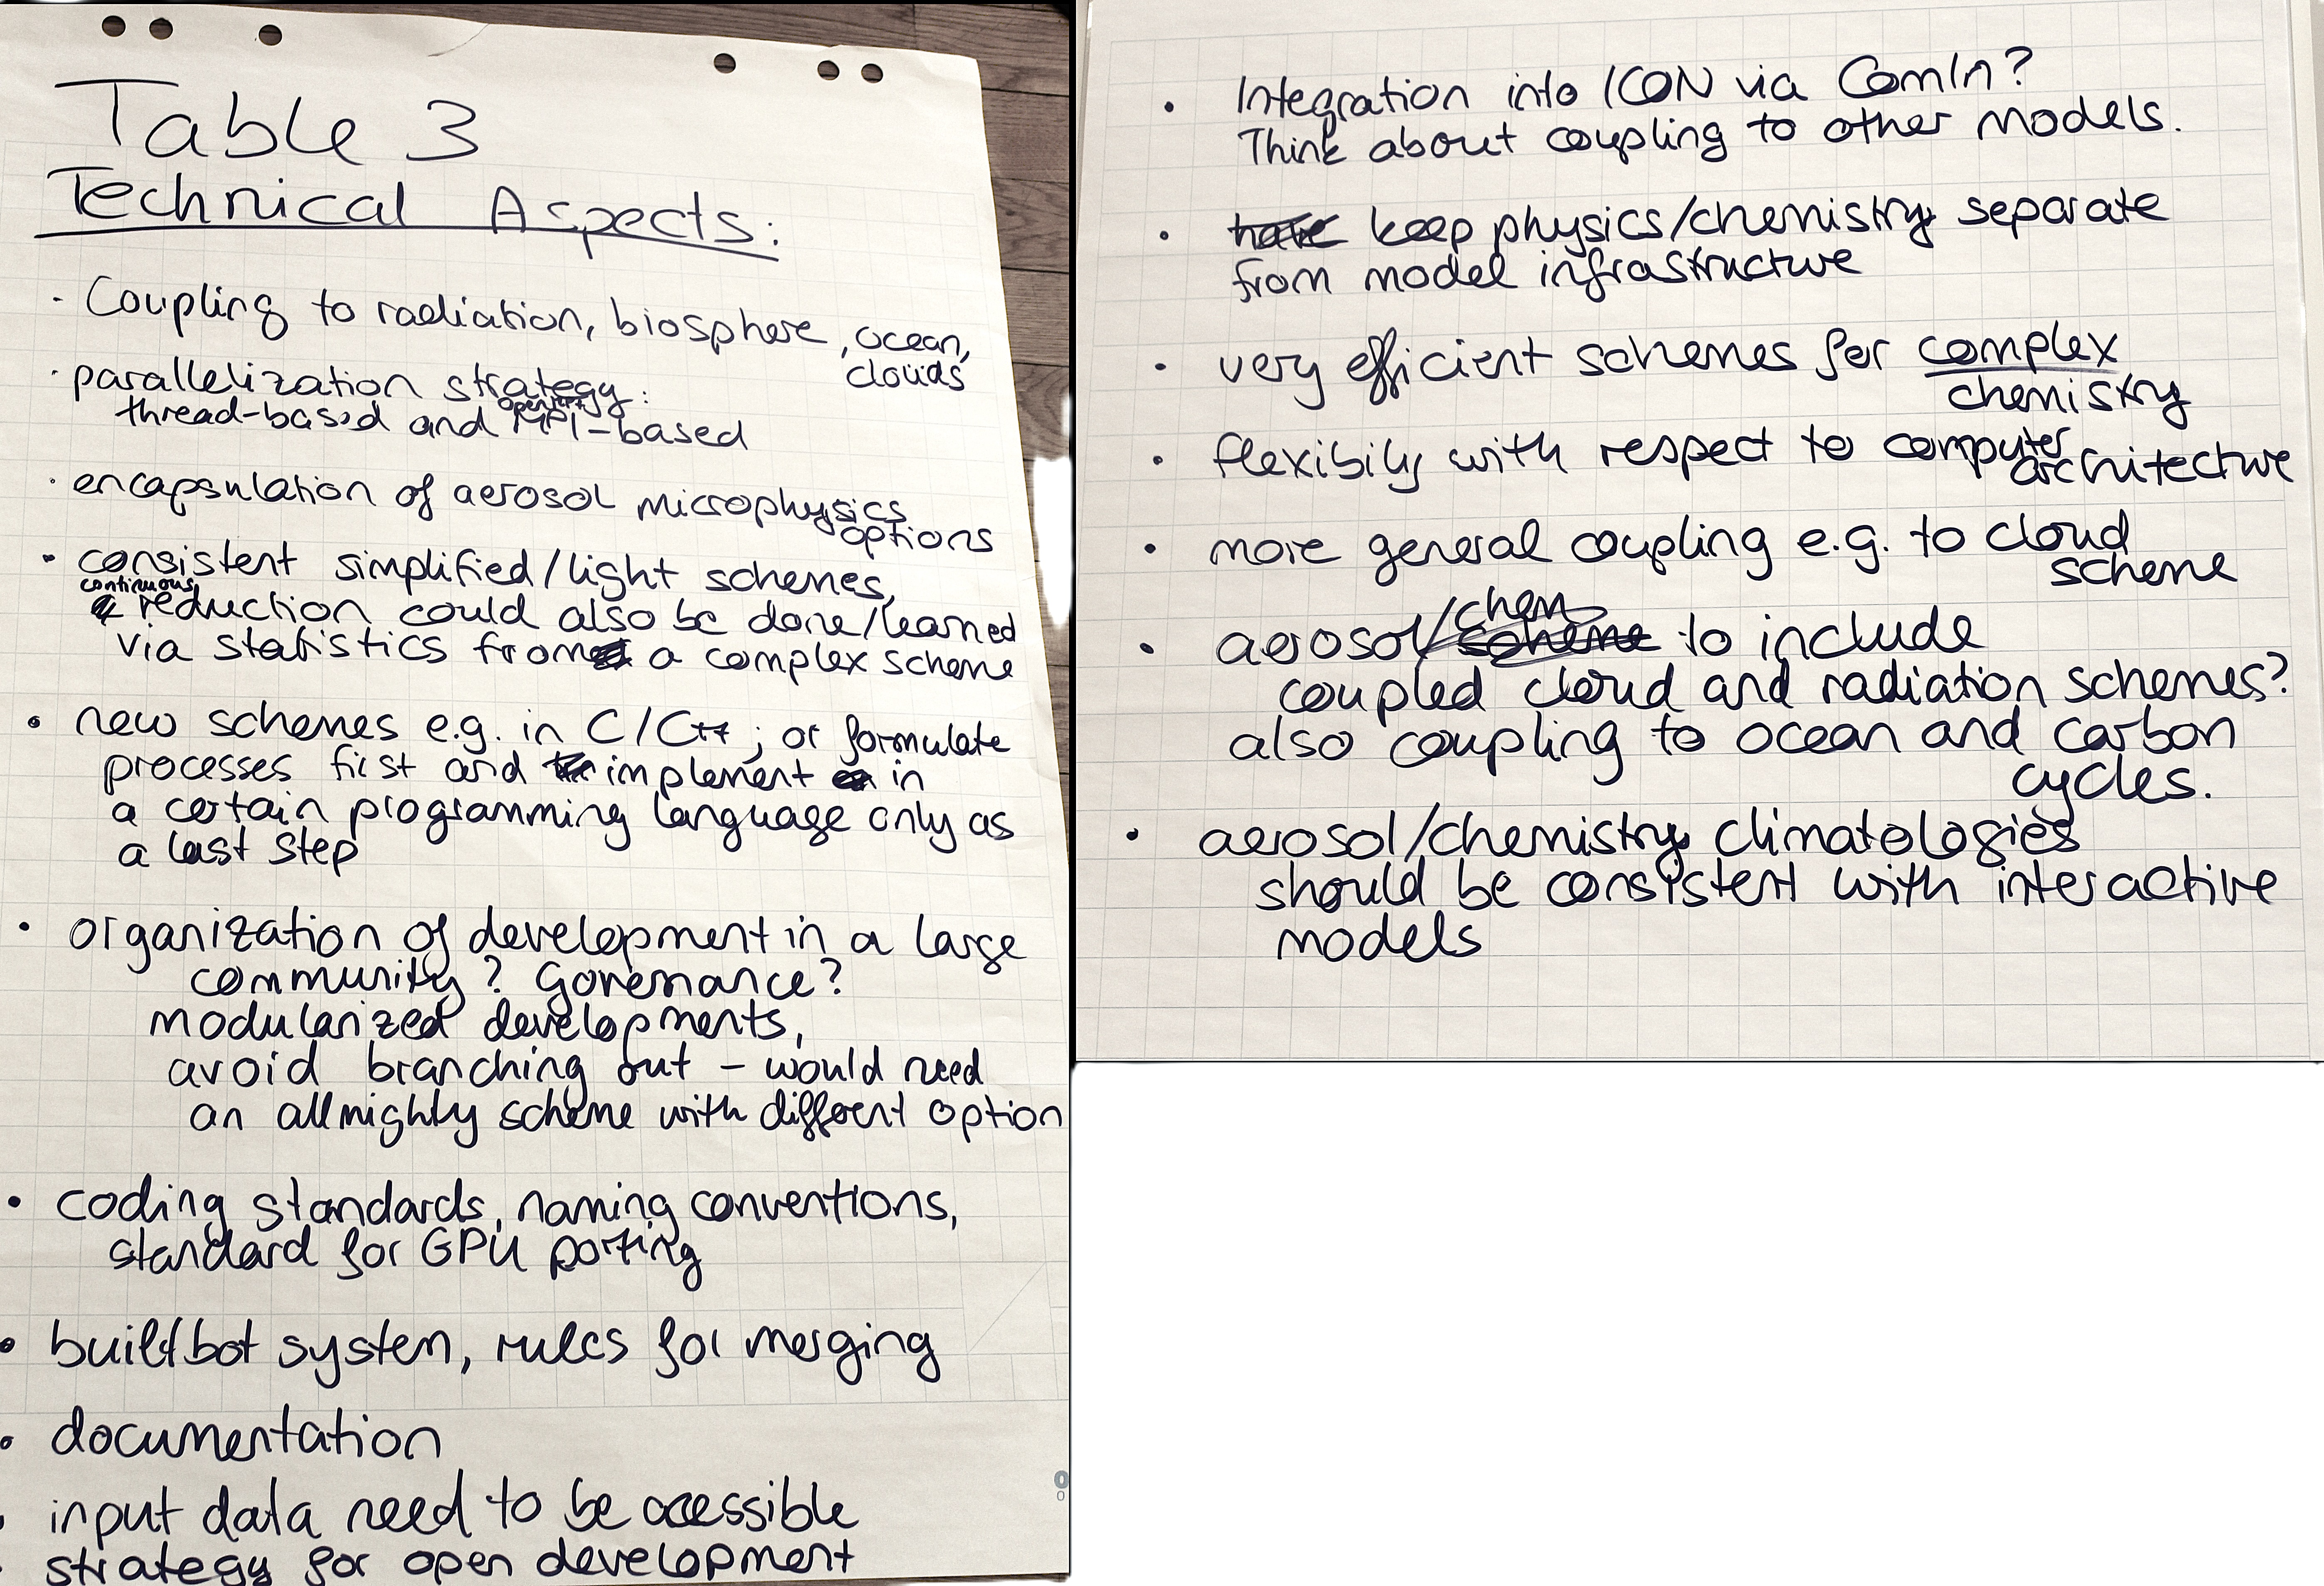 Table 3
Technical Aspects:
· Coupling to radiation, biosphere, ocean,
clouds
· parallelization strategy:
thread-based and MPI-based
· encapsulation of aerosol microphysics
options
· consistent simplified/light schemes,
continuous
reduction could also be done/learned
via statistics from a complex scheme
• new schemes e.g. in C/C++; or formulate
processes first and implement in
a certain programming language only as
a last step
• organization of development in a large
community? Governance?
modularized developments,
avoid branching out – would need
an allmighty scheme with different option
• coding standards, naming conventions,
standard for GPU porting
• buildbot system, rules for merging
• documentation
• input data need to be accessible
• strategy for open development
• Integration into ICON via ComIn?
Think about coupling to other models.
• have keep physics/chemistry separate
from model infrastructure
• very efficient schemes for complex
chemistry
• flexibiliy with respect to computer
architecture
• more general coupling e.g. to cloud
scheme
• aerosol/chem scheme to include
coupled cloud and radiation schemes?
also coupling to ocean and carbon
cycles.
• aerosol/chemistry climatologies
should be consistent with interactive
models